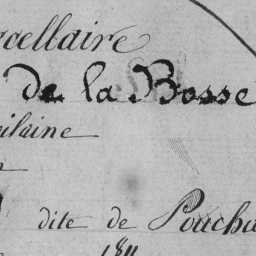 rcellaire
de la Bosse
ilaine
n
dite de Poucha
1811